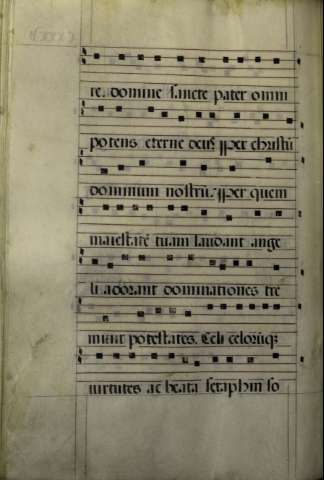 re. domine sancte pater omni
potens eterne deus per christū
dominum nostrū. per quem
maiestatē tuam laudant ange
li adorant dominationes tre
munt potestates. Celi celorūq;
uirtutes ac beata seraphin so